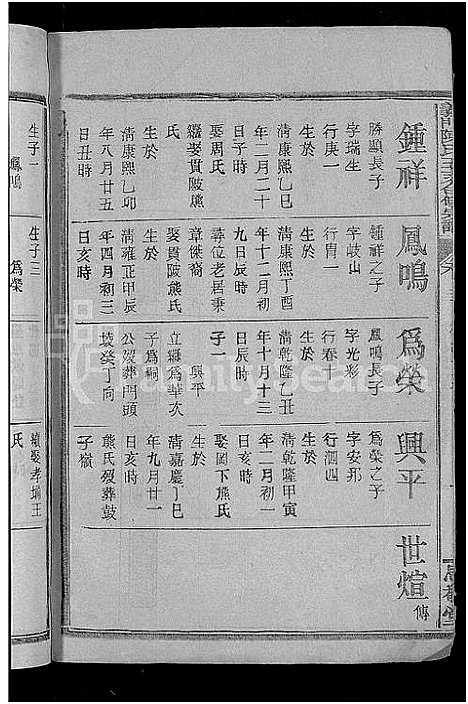 鍾祥
勝顯長子
字瑞生
行庚一
生於
清康熙乙丑
年二月二十
日子時
娶周氏
繼娶貫陂熊
氏
生於
清康熙乙卯
年八月廿五
日丑時
鳳鳴
鍾祥之子
字岐山
行胄一
生於
清康熙丁酉
年十二月初
九日辰時
尋位老居秉
章傑裔
娶貫陂熊氏
生於
清雍正甲辰
年四月初三
日亥時
為榮
鳳鳴長子
字光彩
行春十
生於
清乾隆乙丑
年十月十三
日辰時
子一
興平
立繼為華次
子為嗣
公歿葬門頭
坡癸丁向
興平
為榮之子
字安邦
行泗四
生於
清乾隆甲寅
年二月初一
日亥時
娶岡下熊氏
生於
清嘉慶丁巳
年九月廿一
日亥時
熊氏歿葬鼓
子嶺
世煊傳
生子一
鳳鳴
生子三
為榮
續娶孝塘王
氏